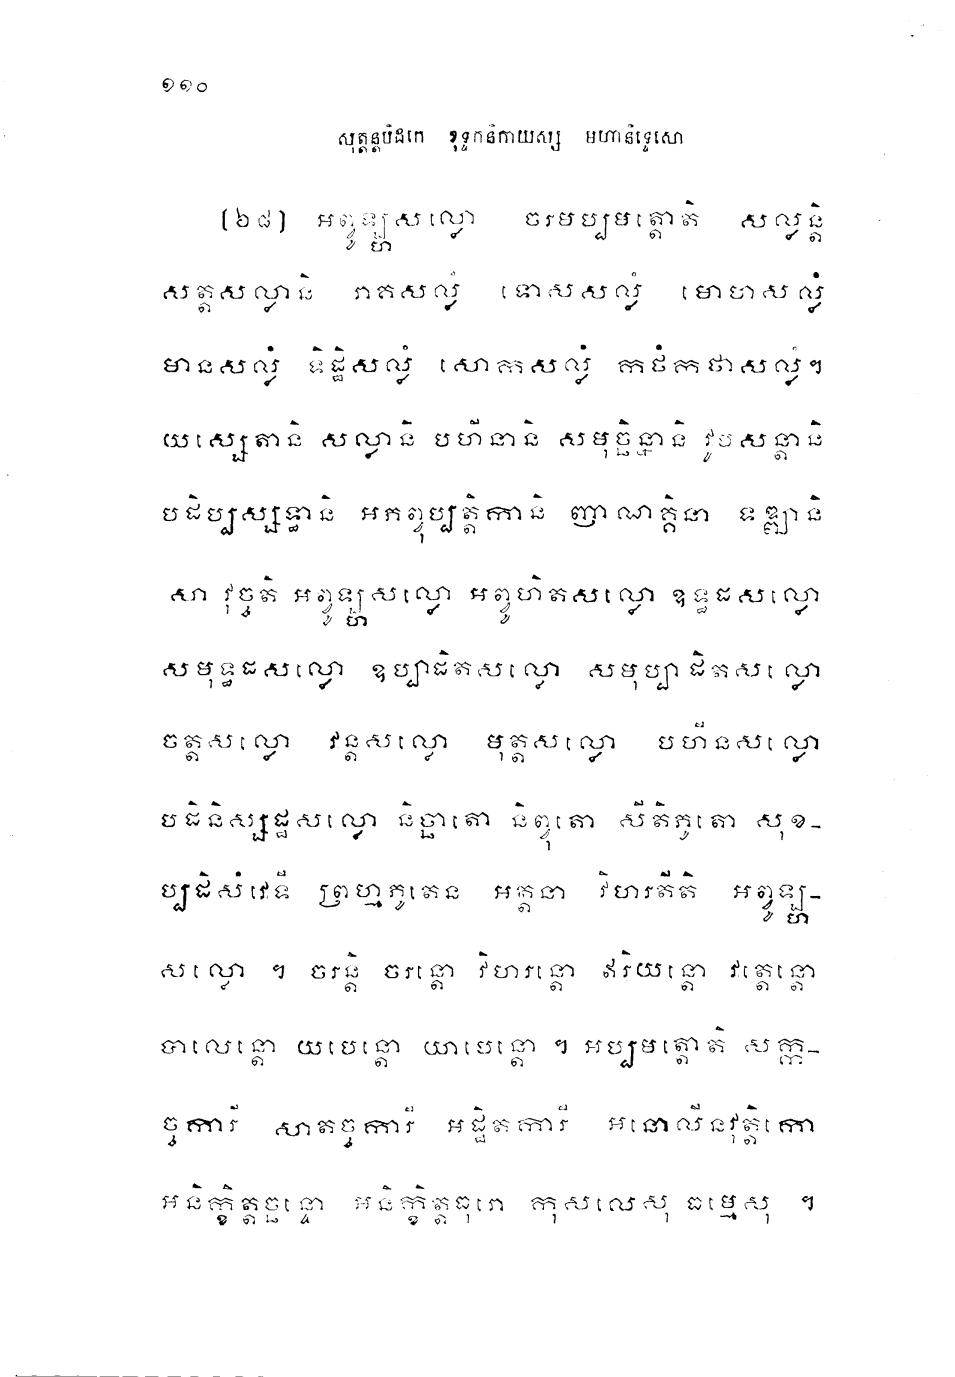 ១១០
សុត្តន្តបិដកេ ខុទ្ទកនិកាយស្ស មហានិទ្ទេសោ
(៦៨) អព្វូឡ្ហសល្លោ ចរមប្បមត្តោតិ សល្លន្តិ
សត្តសល្លានិ រាគសល្លំ ទោសសល្លំ មោហសល្លំ
មានសល្លំ ទិដ្ឋិសល្លំ សោកសល្លំ កថំកថាសល្លំ។
យស្សេតានិ សល្លានិ បហីនានិ សមុច្ឆិន្នានិ វូបសន្តានិ
បដិប្បស្សទ្ធានិ អភព្វុប្បត្តិកានិ ញាណគ្គិនា ទឌ្ឍានិ
សោ វុច្ចតិ អព្វូឡ្ហសល្លោ អព្វូហិតសល្លោ ឧទ្ធដសល្លោ
សមុទ្ធដសល្លោ ឧប្បាដិតសល្លោ សមុប្បាដិតសល្លោ
ចត្តសល្លោ វន្តសល្លោ មុត្តសល្លោ បហីនសល្លោ
បដិនិស្សដ្ឋសល្លោ និច្ឆាតោ និព្វុតោ សីតិភូតោ សុខ-
ប្បដិសំវេទី ព្រហ្មភូតេន អត្តនា វិហរតីតិ អព្វូឡ្ហ-
សល្លោ ។ ចរន្តិ ចរន្តោ វិហរន្តោ ឥរិយន្តោ វត្តេន្តោ
បាលេន្តោ យបេន្តោ យាបេន្តោ ។ អប្បមត្តោតិ សក្ក-
ច្ចការី សាតច្ចការី អដ្ឋិតការី អនោលីនវុត្តិកោ
អនិក្ខិត្តច្ឆន្ទោ អនិក្ខិត្តធុរោ កុសលេសុ ធម្មេសុ ។